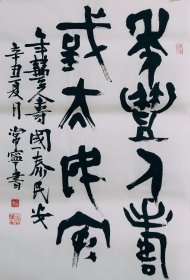 年豐人壽
或太民安
年豐人壽國泰民安
辛丑夏月常寧書